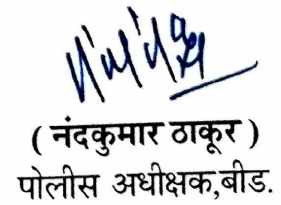 ( नंदकुमार ठाकूर )
पोलीस अधीक्षक,बीड.